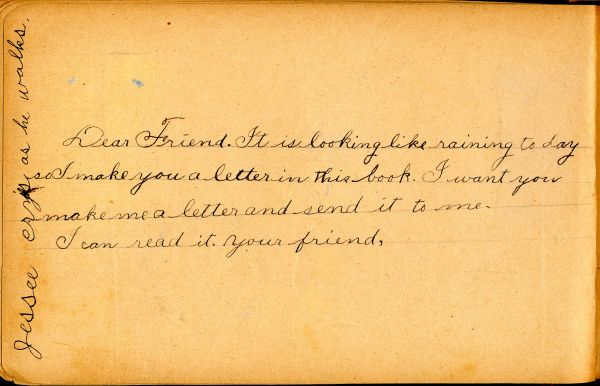 Dear Friend. It is looking like raining to day
so I make you a letter in this book. I want you
make me a letter and send it to me.
I can read it. your friend,
Jessee cryi as he walks.